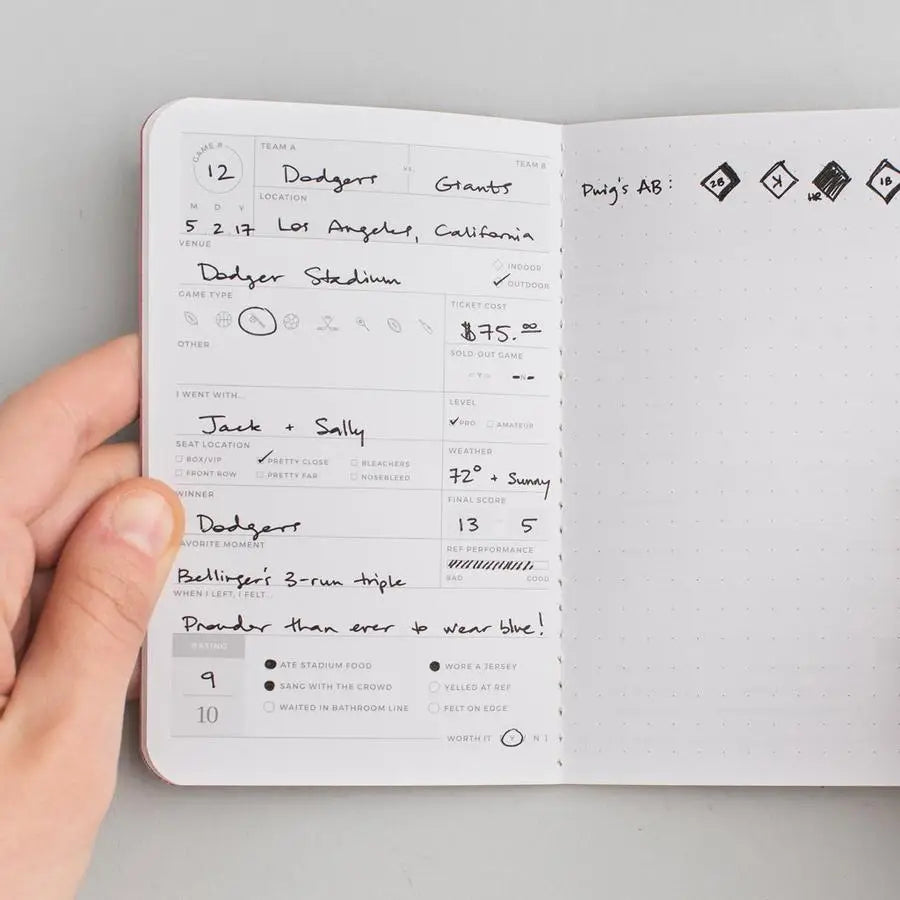 GAME # TEAM A TEAM B
12 Dodgers VS. Giants
LOCATION
M D Y
5 2 17 Los Angeles, California
VENUE
Dodger Stadium
INDOOR
OUTDOOR
GAME TYPE
OTHER
TICKET COST
$75.00
SOLD-OUT GAME
Y N
I WENT WITH...
Jack + Sally
LEVEL
PRO AMATEUR
SEAT LOCATION
BOX/VIP PRETTY CLOSE BLEACHERS
FRONT ROW PRETTY FAR NOSEBLEED
WEATHER
72° + Sunny
WINNER
Dodgers
FINAL SCORE
13 5
FAVORITE MOMENT
Bellinger's 3-run triple
REF PERFORMANCE
BAD GOOD
WHEN I LEFT, I FELT...
Prouder than ever to wear blue!
RATING
9
10
ATE STADIUM FOOD WORE A JERSEY
SANG WITH THE CROWD YELLED AT REF
WAITED IN BATHROOM LINE FELT ON EDGE
WORTH IT [ Y / N ]
Puig's AB: 2B K HR 1B